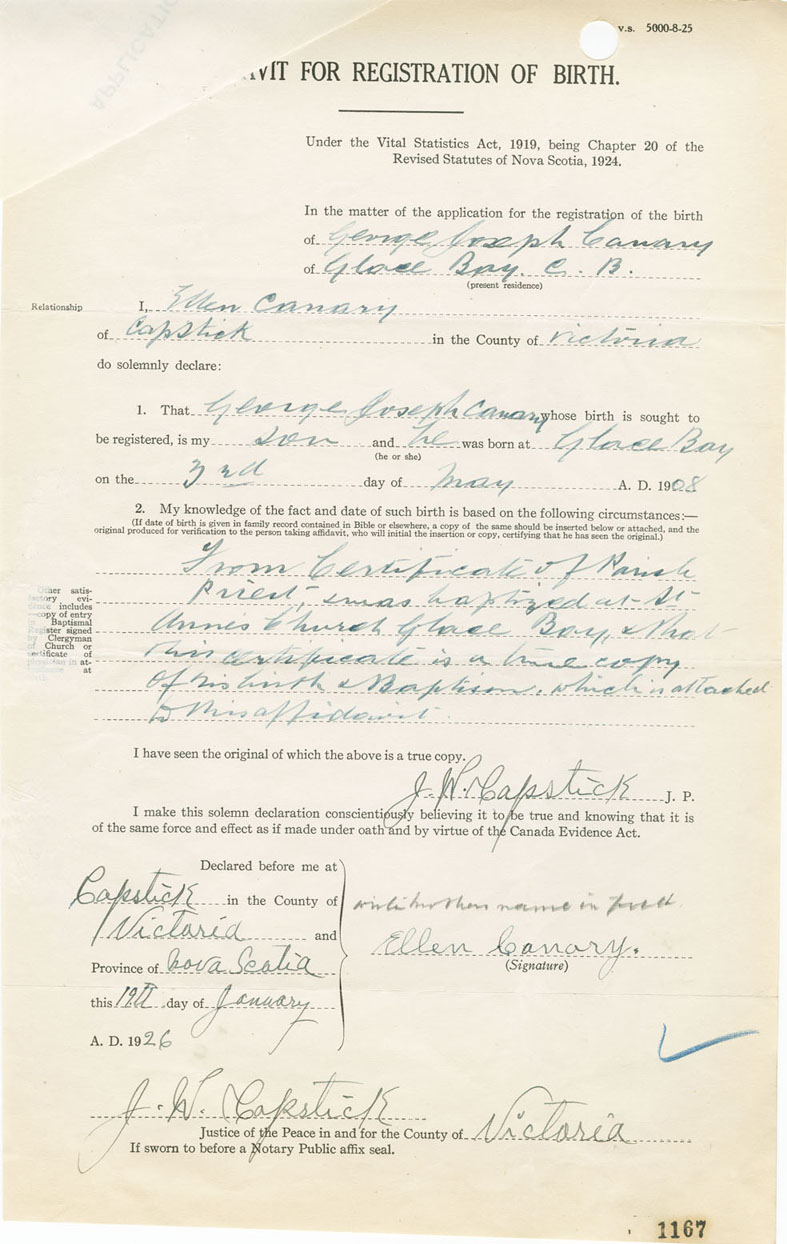 APPLICATI
v.s. 5000-8-25
VIT FOR REGISTRATION OF BIRTH.
Under the Vital Statistics Act, 1919, being Chapter 20 of the
Revised Statutes of Nova Scotia, 1924.
In the matter of the application for the registration of the birth
of George Joseph Canary
of Glace Bay. C. B.
(present residence)
Relationship I, Ellen Canary
of Capstick in the County of Victoria
do solemnly declare:
1. That George Joseph Canary whose birth is sought to
be registered, is my son and he was born at Glace Bay
(he or she)
on the 3rd day of May A. D. 1908
2. My knowledge of the fact and date of such birth is based on the following circumstances:—
(If date of birth is given in family record contained in Bible or elsewhere, a copy of the same should be inserted below or attached, and the
original produced for verification to the person taking affidavit, who will initial the insertion or copy, certifying that he has seen the original.)
Other satis-
factory evi-
dence includes
copy of entry
in Baptismal
Register signed
by Clergyman
of Church or
certificate of
physician in at-
at
From Certificate of Parish
Priest, & was baptized at St
Annes Church Glace Bay, & that
this certificate is a true copy
of his birth & Baptism. which is attached
to this affidavit.
I have seen the original of which the above is a true copy.
J. W. Capstick J. P.
I make this solemn declaration conscientiously believing it to be true and knowing that it is
of the same force and effect as if made under oath and by virtue of the Canada Evidence Act.
Declared before me at
Capstick in the County of
Victoria and
Province of Nova Scotia
this 19th day of January
A. D. 1926
write mothers name in full
Ellen Canary.
(Signature)
J. W. Capstick
Justice of the Peace in and for the County of Victoria
If sworn to before a Notary Public affix seal.
1167